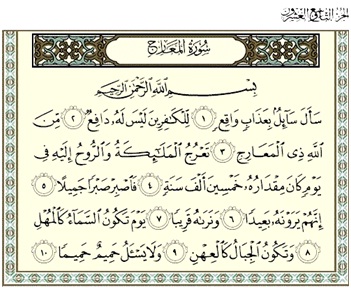 الجزء التاسع والعشرون
سُورَةُ المَعَارِجِ
بِسْمِ اللَّهِ الرَّحْمَٰنِ الرَّحِيمِ
سَأَلَ سَآئِلٌۢ بِعَذَابٍ وَاقِعٍ ١ لِّلْكَٰفِرِينَ لَيْسَ لَهُۥ دَافِعٌ ٢ مِّنَ
اللَّهِ ذِى الْمَعَارِجِ ٣ تَعْرُجُ الْمَلَٰٓئِكَةُ وَالرُّوحُ إِلَيْهِ فِى
يَوْمٍ كَانَ مِقْدَارُهُۥ خَمْسِينَ أَلْفَ سَنَةٍ ٤ فَاصْبِرْ صَبْرًا جَمِيلًا ٥
إِنَّهُمْ يَرَوْنَهُۥ بَعِيدًا ٦ وَنَرَىٰهُ قَرِيبًا ٧ يَوْمَ تَكُونُ السَّمَآءُ كَالْمُهْلِ
٨ وَتَكُونُ الْجِبَالُ كَالْعِهْنِ ٩ وَلَا يَسْـَٔلُ حَمِيمٌ حَمِيمًا ١٠